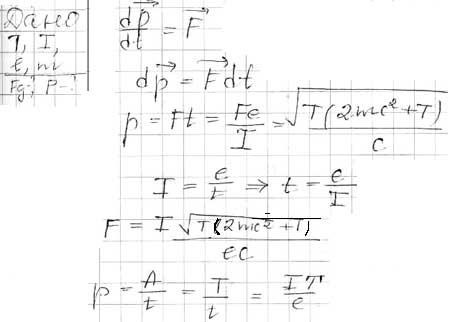 Дано
T, I,
e, m
Fg-?, P-?
dp⃗/dt = F⃗
dp⃗ = F⃗dt
p = Ft = Fe/I = √(T(2mc²+T))/c
I = e/t ⇒ t = e/I
F = I √(T(2mc²+T))/ec
p = A/t = T/t = IT/e